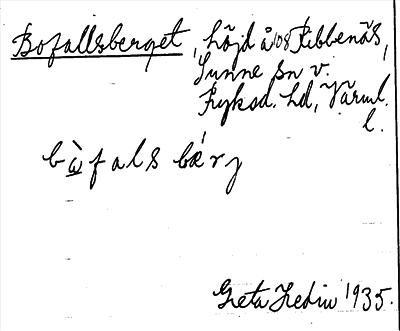 Bofallsberget, höjd å 108 Ribbenäs,
Sunne sn v.
Fryksd. hd, Värml.
l.
bὼfals bǽrj
Greta Hedin 1935.